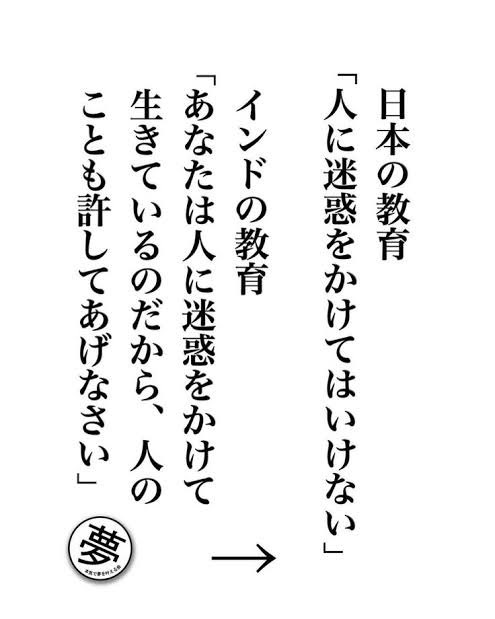 日本の教育
「人に迷惑をかけてはいけない」
インドの教育
「あなたは人に迷惑をかけて
生きているのだから、人の
ことも許してあげなさい」
→
夢
本気で夢を叶える会